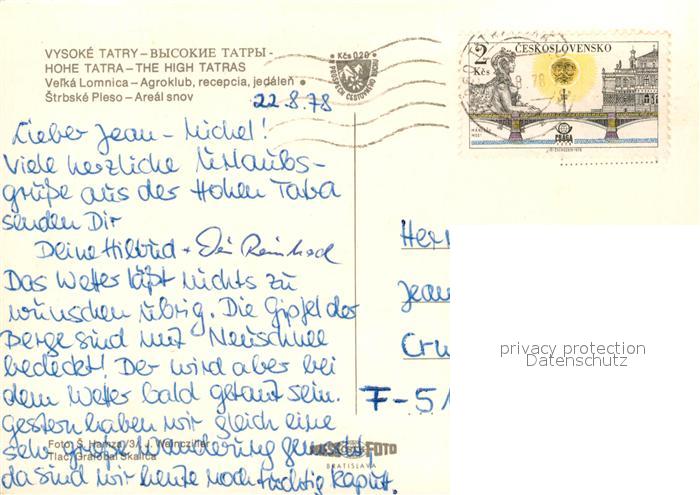 VYSOKÉ TATRY – ВЫСОКИЕ ТАТРЫ -
HOHE TATRA – THE HIGH TATRAS
Veľká Lomnica – Agroklub, recepcia, jedáleň
Štrbské Pleso – Areál snov
Kčs 0,20
2 Kčs
ČESKOSLOVENSKO
PRAGA
22.8.78
Lieber Jean-Michel!
Viele herzliche Urlaubs-
grüße aus der Hohen Tatra
senden Dir
Deine Hiltrud + Dein Reinhard
Das Wetter läßt nichts zu
wünschen übrig. Die Gipfel der
Berge sind mit Neuschnee
bedeckt! Der wird aber bei
dem Wetter bald getaut sein.
Gestern haben wir gleich eine
sehr große Wanderung gemacht,
da sind wir heute noch richtig kaputt.
Herr
Jean
Cru
F-51
privacy protection
Datenschutz
Foto: Š. Hamza /3/, J. Weincziller
Tlač: Grafobal Skalica
FOTO
BRATISLAVA